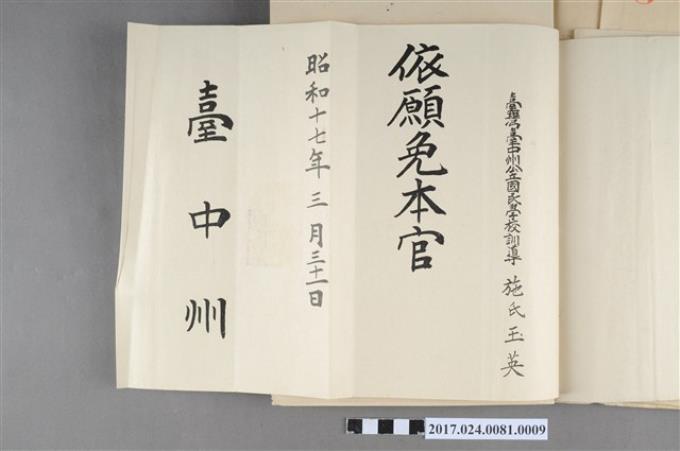 臺灣臺中州公立國民學校訓導 施氏玉英
依願免本官
昭和十七年三月三十一日
臺中州
2017.024.0081.0009